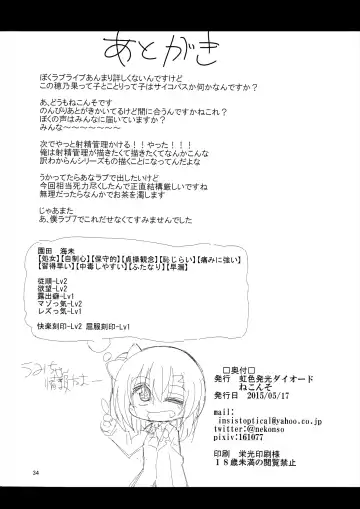 あとがき
ぼくラブライブあんまり詳しくないんですけど
この穂乃果って子とことりって子はサイコパスか何かなんですか？
あ、どうもねこんそです
のんびりあとがきかいてるけど間に合うんですかねこれ？
ぼくの声はみんなに届いていますか？
みんな～～～～～～～
次でやっと射精管理かける！！やった！！！
俺は射精管理が描きたくて描きたくてなんかこんな
訳わからんシリーズもの描くことになってんだよな
うかってたらあなラブで出したいけど
今回相当死力尽くしたんで正直結構厳しいですね
無理だったらなんかでお茶を濁します
じゃあまた
あ、僕ラブ７でこれだせなくてすみませんでした
園田　海未
【処女】【自制心】【保守的】【貞操観念】【恥じらい】【痛みに強い】
【習得早い】【中毒しやすい】【ふたなり】【早漏】
従順-Lv2
欲望-Lv2
露出癖-Lv1
マゾっ気-Lv2
レズっ気-Lv1
快楽刻印-Lv2 屈服刻印-Lv1
□奥付□
発行　虹色発光ダイオード
ねこんそ
発行日　2015/05/17
mail:
insistoptical@yahoo.co.jp
twitter:@nekonso
pixiv:161077
印刷　栄光印刷様
１８歳未満の閲覧禁止
34